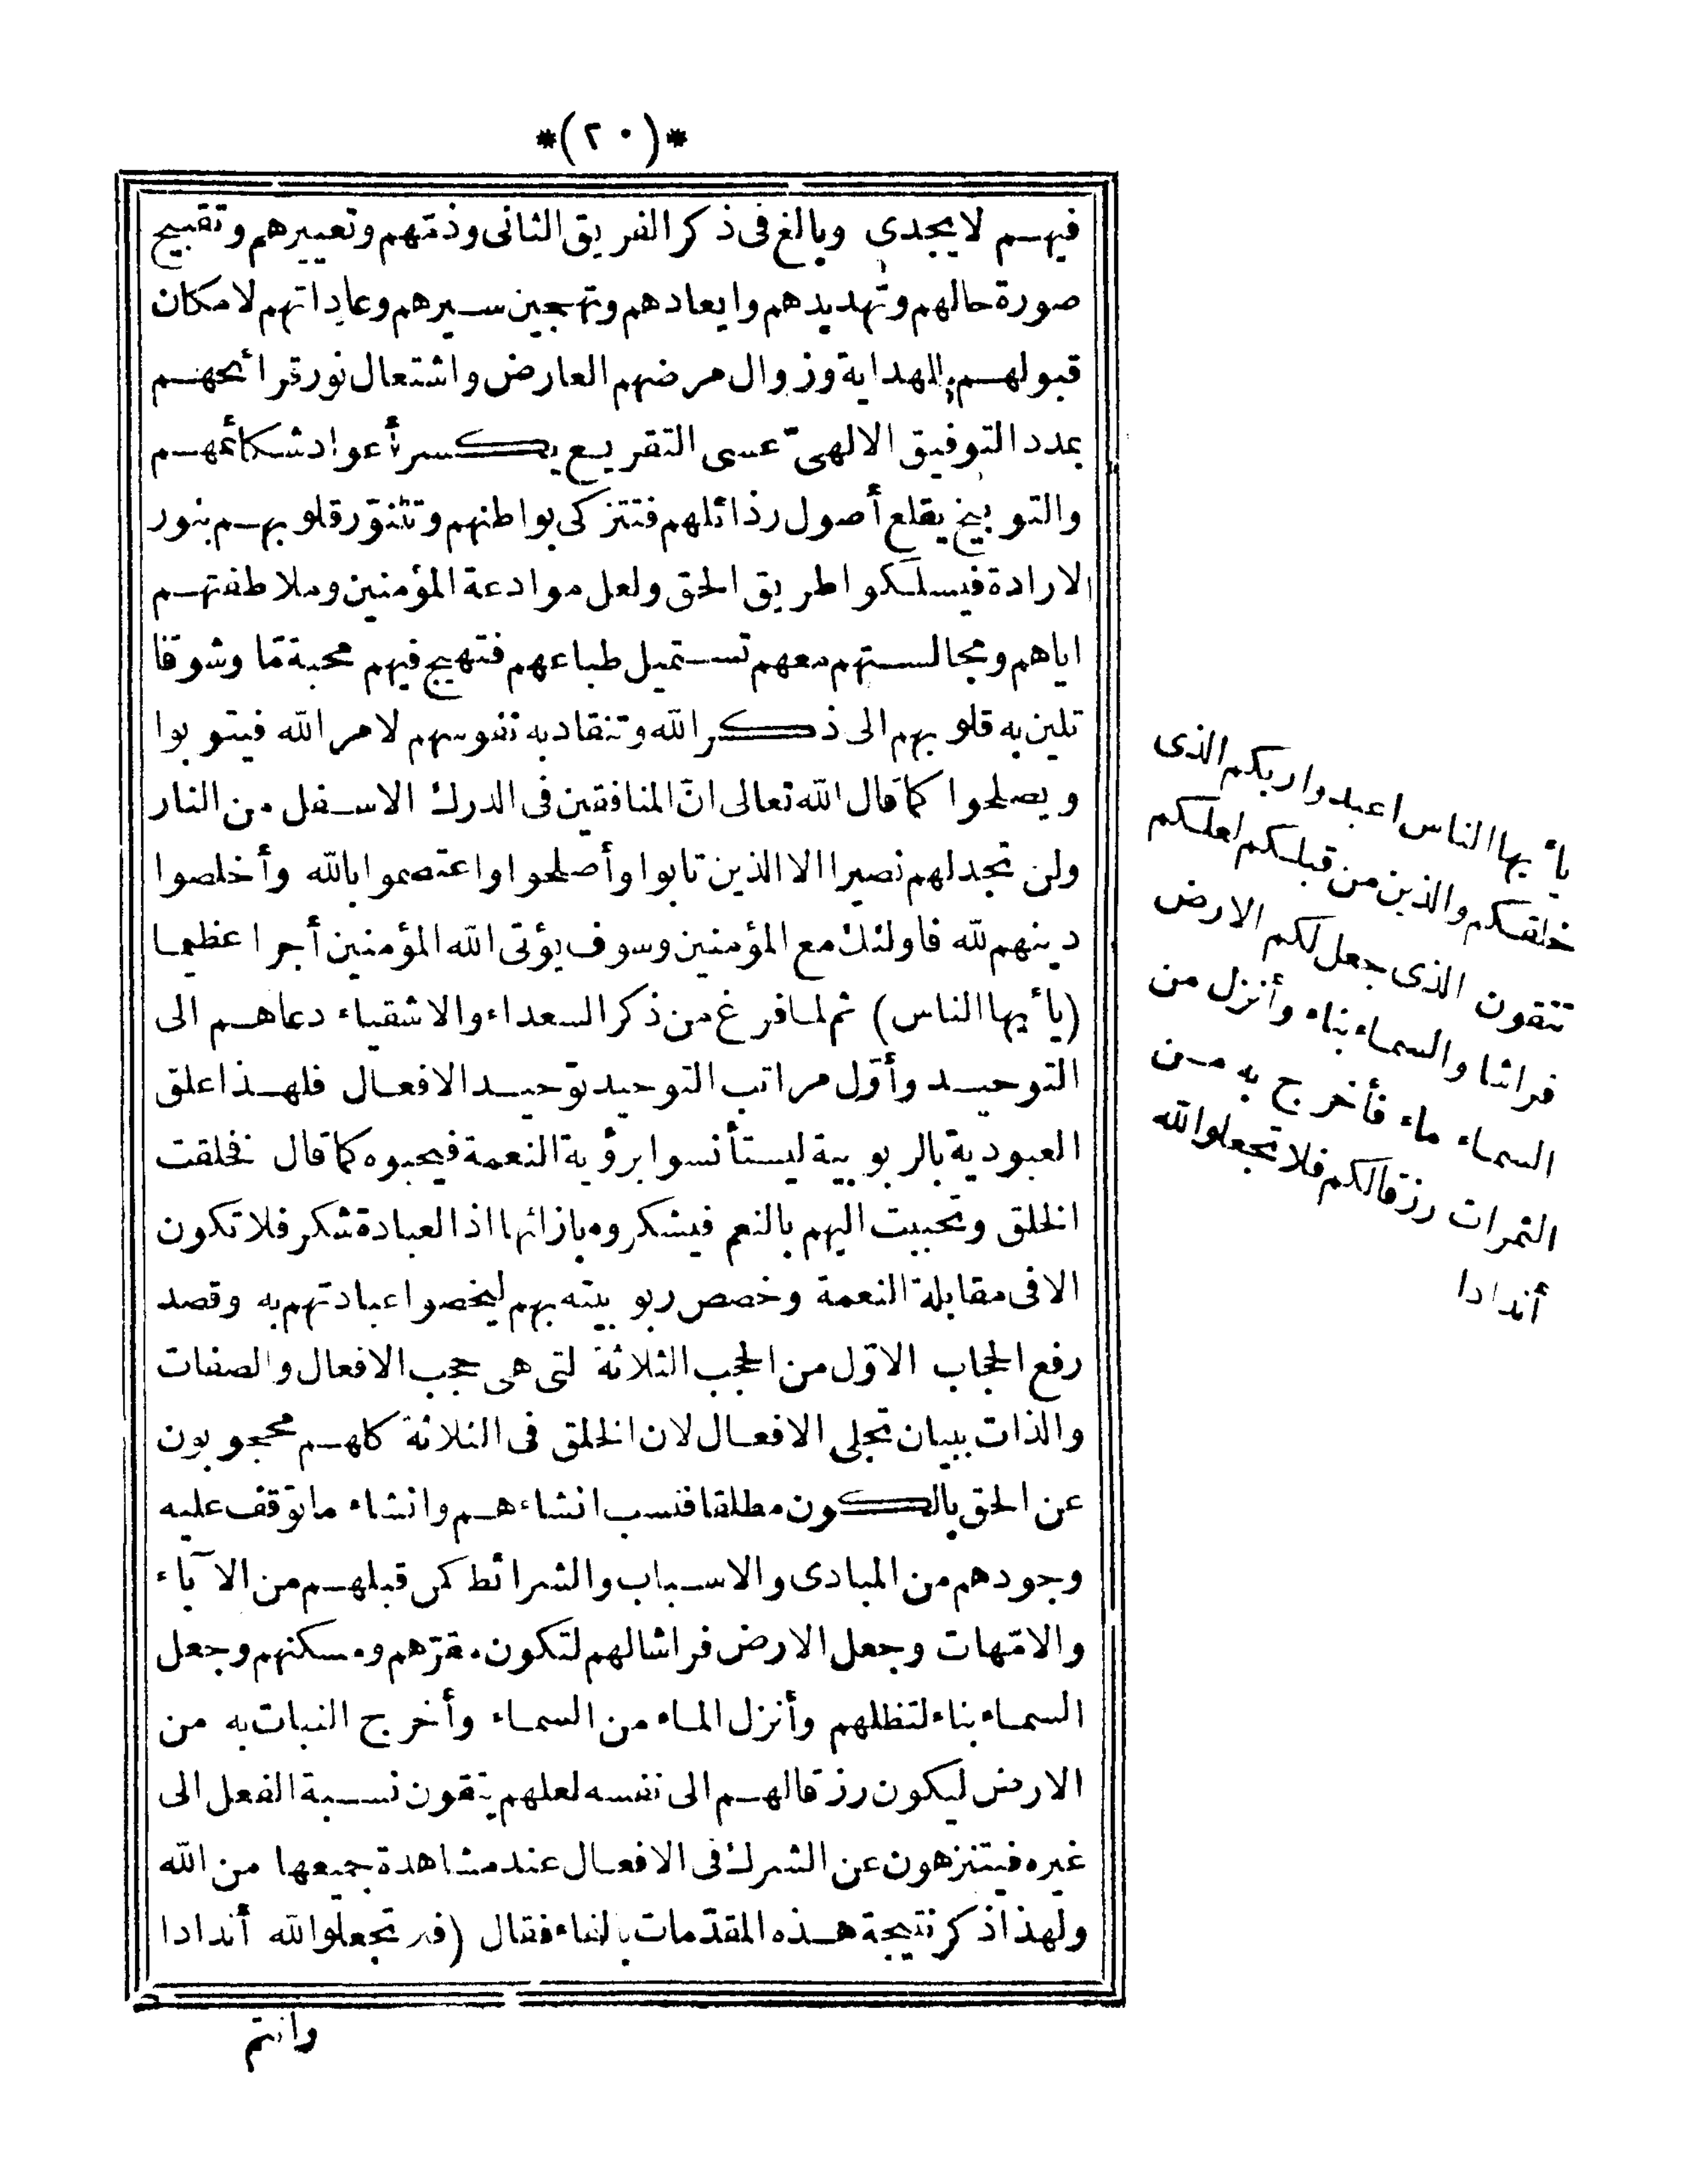 *(٢٠)*
فيهم لا يجدى وبالغ فى ذكر الفريق الثانى وذمّهم وتعييرهم وتقبيح
صورة حالهم وتهديدهم وايعادهم وتهجين سيرهم وعاداتهم لامكان
قبولهم للهداية وزوال مرضهم العارض واشتعال نور قرائحهم
بمدد التوفيق الالهىّ عسى التقريع يكسر أعواد شكائمهم
والتوبيخ يقلع أصول رذائلهم فتتزكى بواطنهم وتتنوّر قلوبهم بنور
الارادة فيسلكوا طريق الحق ولعل موادعة المؤمنين وملاطفتهم
اياهم ومجالستهم معهم تستميل طباعهم فتهيج فيهم محبة مّا وشوقا
تلين به قلوبهم الى ذكر الله وتنقاد به نفوسهم لامر الله فيتوبوا
ويصلحوا كما قال الله تعالى انّ المنافقين فى الدرك الاسفل من النار
ولن تجد لهم نصيرا الا الذين تابوا وأصلحوا واعتصموا بالله وأخلصوا
دينهم لله فاولئك مع المؤمنين وسوف يؤتى الله المؤمنين أجرا عظيما
(يا أيها الناس) ثم لما فرغ من ذكر السعداء والاشقياء دعاهم الى
التوحيد وأوّل مراتب التوحيد توحيد الافعال فلهذا علق
العبودية بالربوبية ليستأنسوا برؤية النعمة فيحبوه كما قال فخلقت
الخلق وتحببت اليهم بالنعم فيشكروه بازائها اذ العبادة شكر فلا تكون
الا فى مقابلة النعمة وخصص ربوبيته بهم ليخصوا عبادتهم به وقصد
رفع الحجاب الاوّل من الحجب الثلاثة لتى هى حجب الافعال والصفات
والذات ببيان تجلى الافعال لان الخلق فى الثلاثة كلهم محجوبون
عن الحق بالكون مطلقا فنسب انشاءهم وانشاء ما توقف عليه
وجودهم من المبادى والاسباب والشرائط كمن قبلهم من الآباء
والامّهات وجعل الارض فراشا لهم لتكون مقرّهم ومسكنهم وجعل
السماء بناء لتظلهم وأنزل الماء من السماء وأخرج النبات به من
الارض ليكون رزقا لهم الى نفسه لعلهم يتقون نسبة الفعل الى
غيره فيتنزهون عن الشرك فى الافعال عند مشاهدة جميعها من الله
ولهذا ذكر نتيجة هذه المقدّمات بالفاء فقال (فلا تجعلوا لله أندادا
وانتم
يا أيها الناس اعبدوا ربكم الذى
خلقكم والذين من قبلكم لعلكم
تتقون الذى جعل لكم الارض
فراشا والسماء بناء وأنزل من
السماء ماء فأخرج به من
الثمرات رزقا لكم فلا تجعلوا لله
أندادا